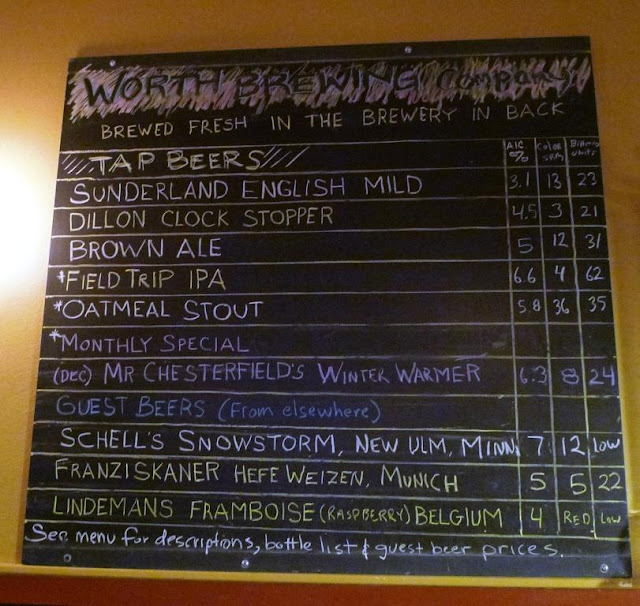 WORTH BREWING Company
BREWED FRESH IN THE BREWERY IN BACK
TAP BEERS Alc % Color SRM Bitterness units
SUNDERLAND ENGLISH MILD 3.1 13 23
DILLON CLOCK STOPPER 4.5 3 21
BROWN ALE 5 12 31
*FIELD TRIP IPA 6.6 4 62
*OATMEAL STOUT 5.8 36 35
*MONTHLY SPECIAL
(DEC) MR CHESTERFIELD'S WINTER WARMER 6.3 8 24
GUEST BEERS (From elsewhere)
SCHELL'S SNOWSTORM, NEW ULM, MINN. 7 12 Low
FRANZISKANER HEFE WEIZEN, MUNICH 5 5 22
LINDEMANS FRAMBOISE (RASPBERRY) BELGIUM 4 RED Low
See menu for descriptions, bottle list & guest beer prices.